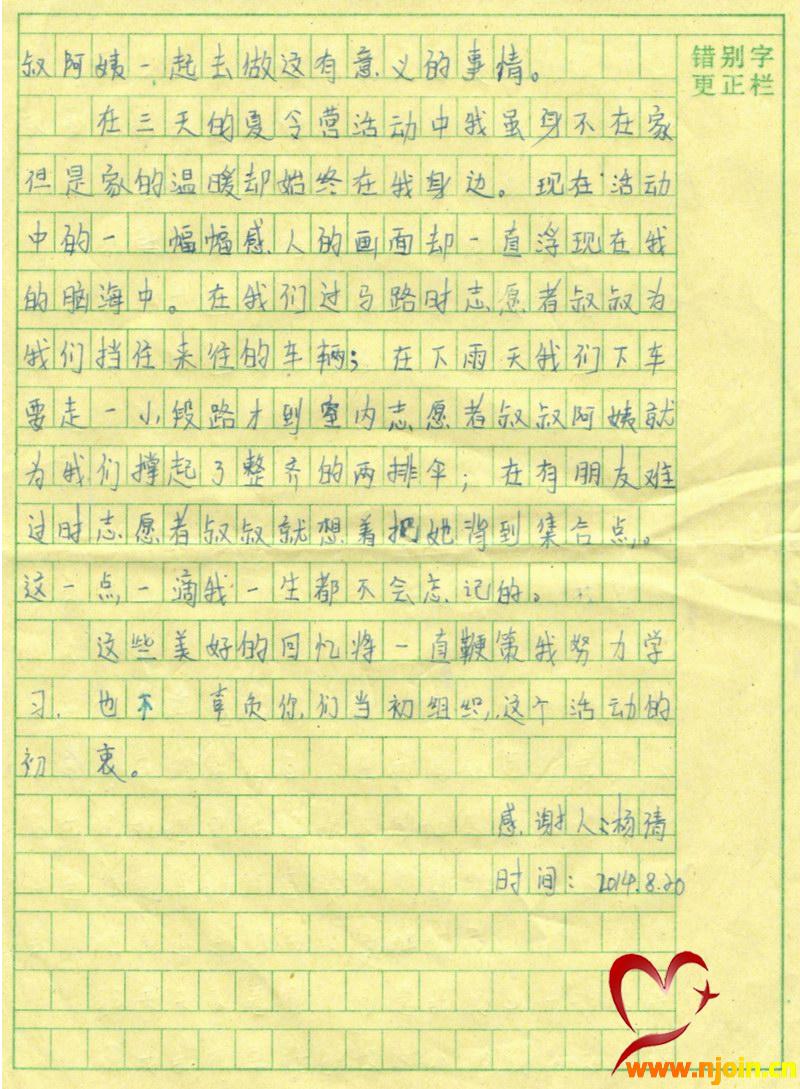 叔阿姨一起去做这有意义的事情。
错别字
更正栏
在三天的夏令营活动中我虽身不在家
但是家的温暖却始终在我身边。现在活动
中的一幅幅感人的画面却一直浮现在我
的脑海中。在我们过马路时志愿者叔叔为
我们挡住来往的车辆；在下雨天我们下车
要走一小段路才到室内志愿者叔叔阿姨就
为我们撑起了整齐的两排伞；在有朋友难
过时志愿者叔叔就想着把她背到集合点。
这一点一滴我一生都不会忘记的。
这些美好的回忆将一直鞭策我努力学
习.也不辜负你们当初组织这个活动的
初衷。
感谢人:杨倩
时间：2014.8.20
www.njoin.cn